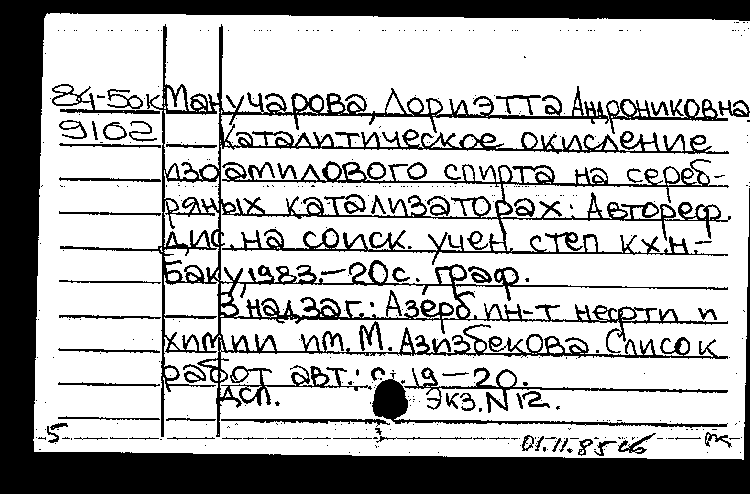 84-5ок Манучарова, Лориэтта Андрониковна
9102 Каталитическое окисление
изоамилового спирта на сереб-
ряных катализаторах: Автореф.
дис. на соиск. учен. степ к.х.н.-
Баку, 1983.-20с., граф.
В надзаг.: Азерб. ин-т нефти и
химии им. М. Азизбекова. Список
работ авт.: с. 19-20.
ДСП. Экз. N 12.
5 3 01.11.85